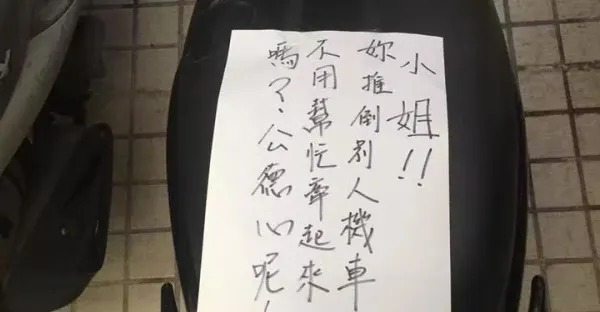 小姐!!
妳推倒別人機車
不用幫忙牽起來
嗎？公德心呢